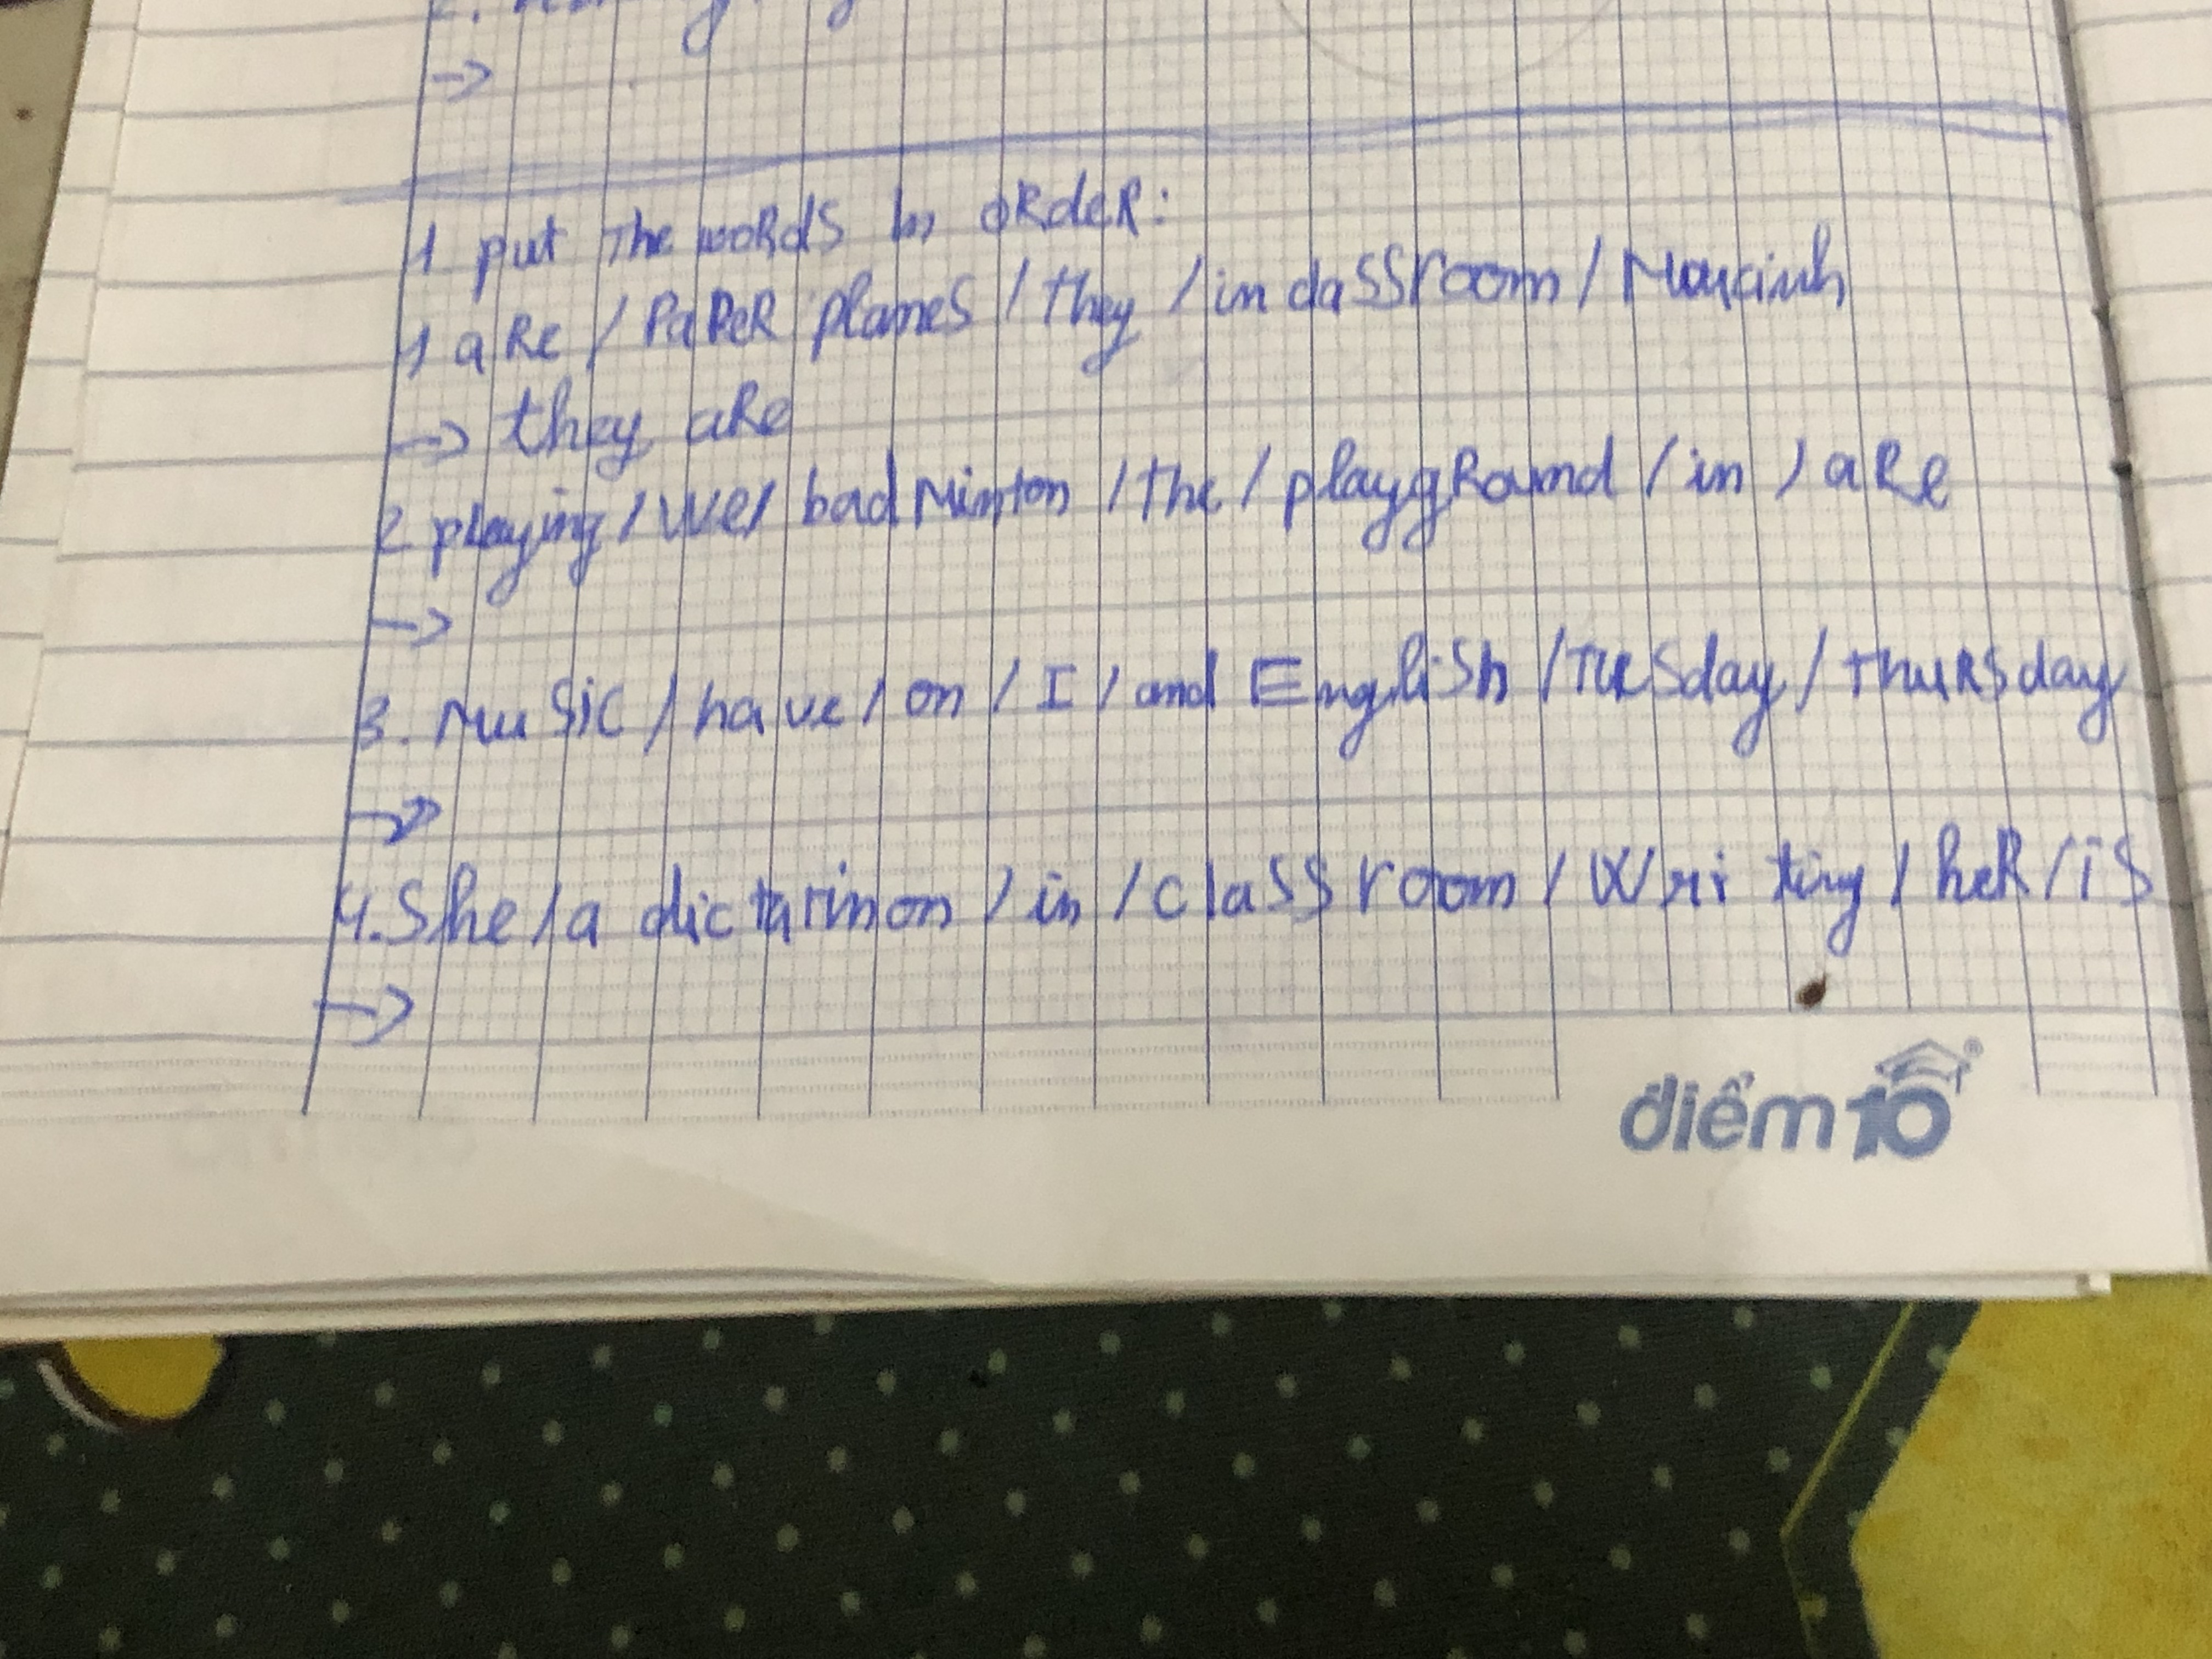 →
1 put The woRds in oRdeR:
1 aRe / PaPeR planes / they / in classroom /
→ they aRe
2 playing / We / badMinton / The / playgRound / in / aRe
→
3. Music / have / on / I / and English / Tuesday / ThuRsday
→
4. She / a dictarinon / in / classroom / Writing / heR / is
→
điểm 10